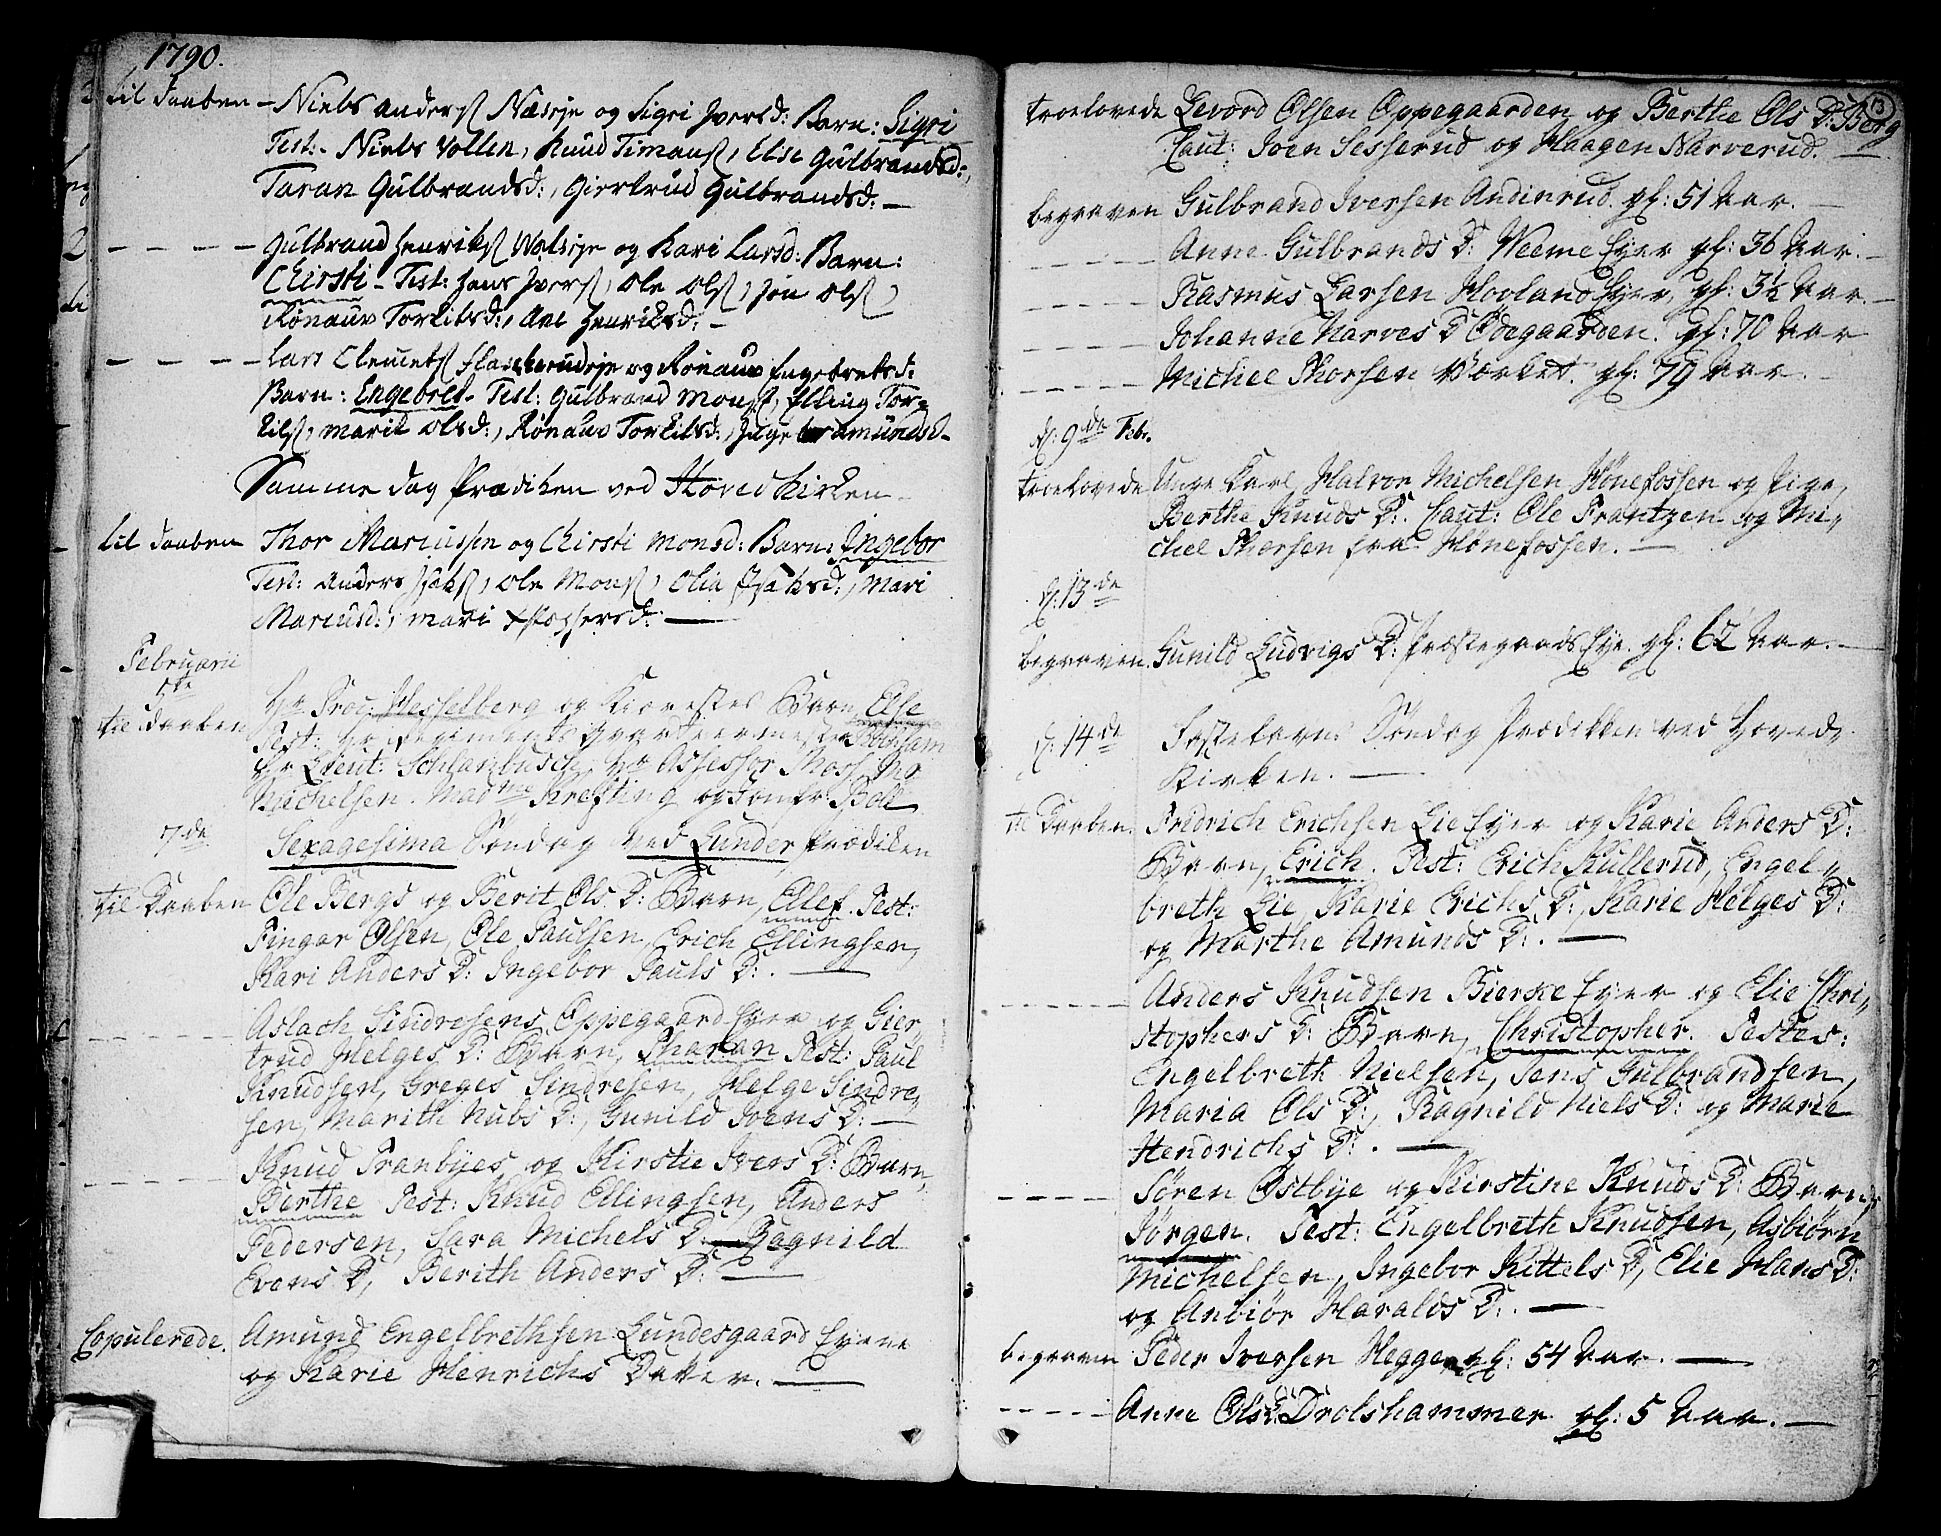 1790.
til Daaben - Niels Anders Næseje og Sigri Iversd: Barn: Sigri
Test:- Niels Vollen, Knud Timans, Elise Gulbrandsd:,
Taran Gulbrandsd:, Giertrud Gulbrandsd: -
- - - - Gulbrand Henriks og Kari Larsd: Barn:
Chirsti - Test: Hans Ivers, Ole Ols, Jon Ols,
Rønauv Torkilsd:, Ane Henriksd: -
- - - - Lars Clemets og Rønauv Engebretsd:
Barn: Engebret - Test: Gulbrand Mons, Elling Tor=
kils, Marit Olsd:, Rønauv Torkilsd:, Amundsd -
Samme dag Prædiken ved Hoved Kirken -
til Daaben Thor Mariussen og Chirsti Monsd: Barn: Ingebor
Test: Anders Isaks, Ole Mons, Olia Isaksd:, Mari
Mariusd:, Mari
Februarii
5te
til Daaben Hr Proc: Hesselberg og Kiærestes Barn Else
Test: Hr Regiments Qvarteermester
Hr Lieut: Schlanbusch, Hr Assessor Moss, Mr
Michelsen. Madme Krefting og Jomfr: Boll
7de Sexagesima Søndag ved Lunder Prædiken
til Daaben Ole Bergs og Berit Ols D: Barn, Ellef. Test:
Fingar Olsen, Ole Paulsen, Erich Ellingsen,
Kari Anders D: Ingebor Pauls D: . -
- - - - Aslach Sindresens Oppegaard Eyer og Gier„
trud Helges D: Barn, Tharan Test: Paul
Knudsen, Greges Sindresen, Helge Sindre„
sen, Marith Nubs D:, Gunild Ivens D: -
- - - - Knud Tranbyes og Kirstie Ivers D: Barn,
Berthe Test: Knud Ellingsen, Anders
Pedersen, Sara Michels D: Ragnild
Evens D, Berith Anders D: -
Copulerede. Amund Engelbrethsen Lundesgaard Eyene
og Karie Henrichs Datter. -
13
troelovede Levord Olsen Oppegaarden og Berthe Ols D: Berg
Caut: Joen Sesserud og Haagen Narverud. -
begraven Gulbrand Iversen Andinrud. gl: 51 Aar. -
- - - - Anne Gulbrands D: Weeme Eyer gl: 36 Aar. -
- - - - Rasmus Larsen Hovland Eyer, gl: 3½ Aar. -
- - - - Johanne Narves D Ødegaarden. gl: 70 Aar
- - - - Michel Thorsen Børket. gl: 79 Aar. -
d: 9da Febr.
troelovede Unge Karl Halvor Michelsen Hønefossen og Pige,
Berthe Knuds D:. Caut: Ole Frantzen og Mi„
chel Thorsen fra Hønefossen. -
d: 13de
begraven. Gunild Ludvigs D: Præstegaards Eye. gl: 62 Aar. -
d: 14de Fastelavns Søndag Prædikken ved Hoved„
Kirken. -
til Daaben. Fridrich Erichsen Lie Eyer og Karie Anders D:
Barn, Erich. Test: Erich Kullerud, Engel„
breth Lie, Karie Erichs D:, Karie Helges D:
og Marthe Amunds D:. -
- - - - Anders Knudsen Bierke Eyer og Elie Chri„
stophers D: Barn, Christopher. Testes:
Engelbreth Nielsen, Jens Gulbrandsen,
Maria Ols D:, Ragnild Niels D: og Marie
Hendrichs D: . -
- - - - Søren Østbye og Kirstine Knuds D: Barn
Jørgen. Test: Engelbreth Knudsen, Asbiørn
Michelsen, Ingebor Kittels D, Elie Hans D:
og Anbiør Haralds D: . -
begraven Peder Iversen Heggen gl: 54 Aar. -
- - - - Anne Ols D: Drolshammer gl: 5 Aar. -